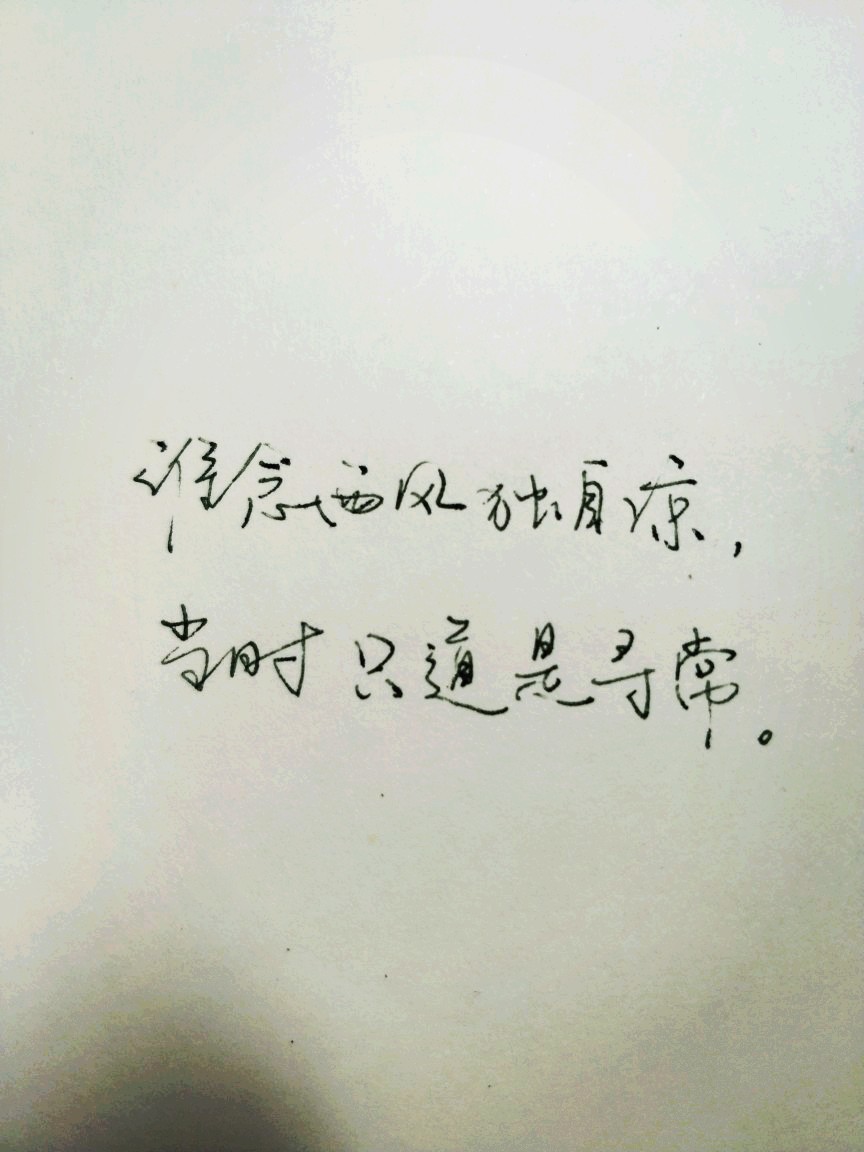 谁念西风独自凉，
当时只道是寻常。